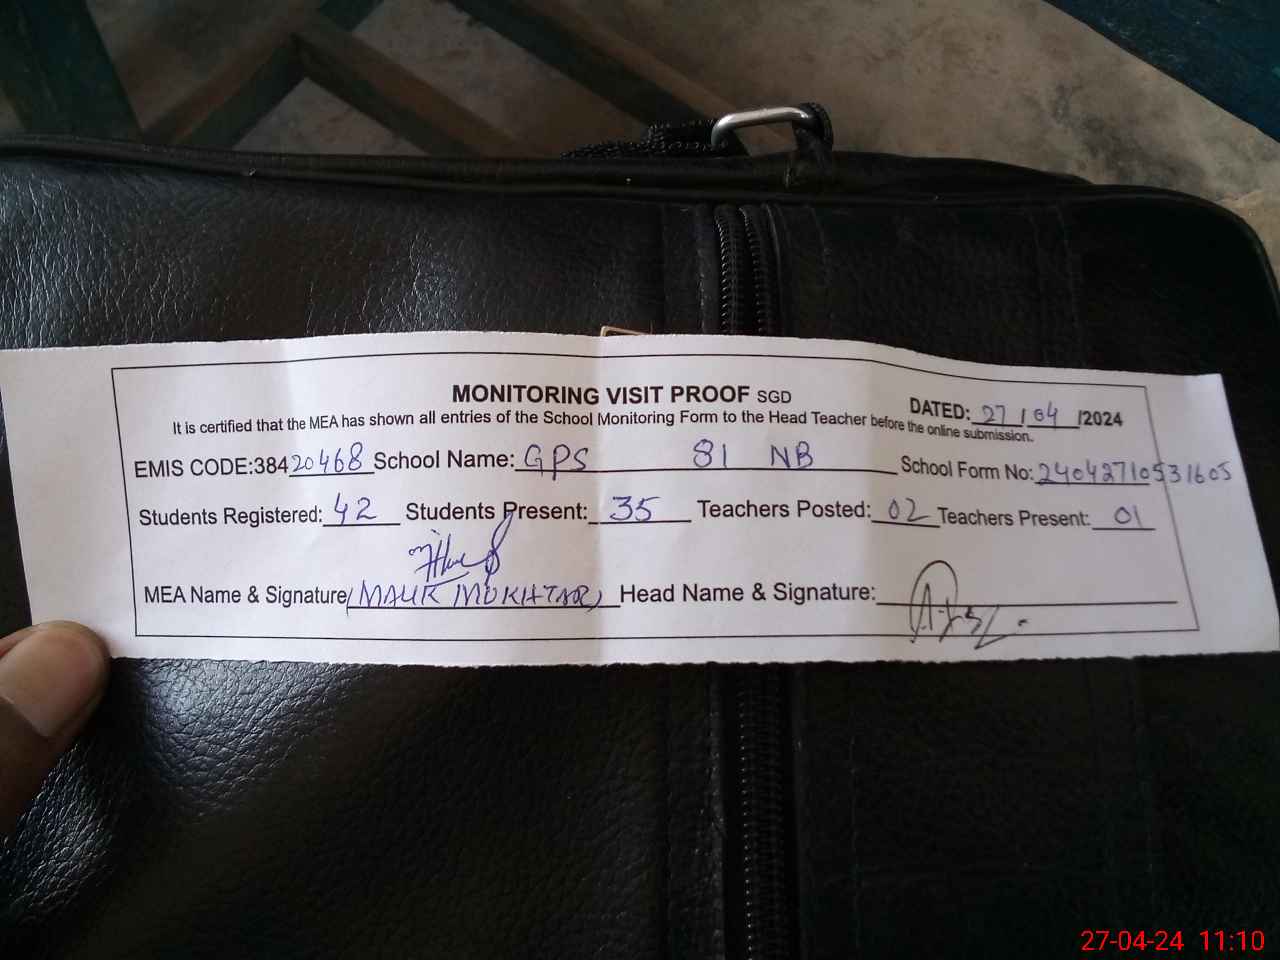 MONITORING VISIT PROOF SGD
DATED: 27/04/2024
It is certified that the MEA has shown all entries of the School Monitoring Form to the Head Teacher before the online submission.
EMIS CODE:38420468 School Name: GPS 81 NB School Form No: 24042710531605
Students Registered: 42 Students Present: 35 Teachers Posted: 02 Teachers Present: 01
MEA Name & Signature (MALIK MUKHTAR) Head Name & Signature:
27-04-24 11:10